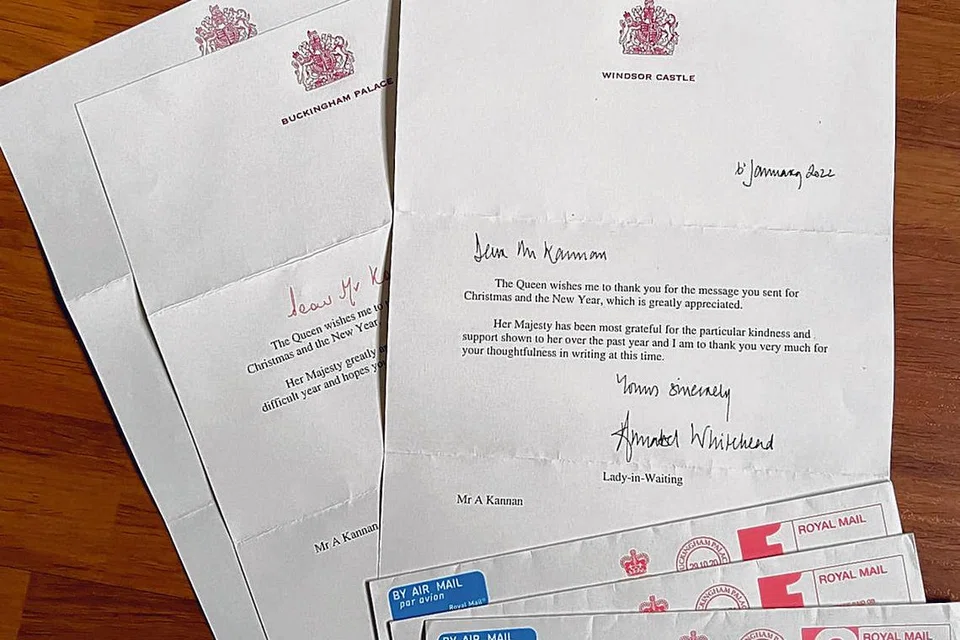 BUCKINGHAM PALACE
Dear Mr
The Queen wishes me to
Christmas and the New Year
Her Majesty greatly
difficult year and hopes
Mr A Kannan
WINDSOR CASTLE
January 2022
Dear Mr Kannan
The Queen wishes me to thank you for the message you sent for
Christmas and the New Year, which is greatly appreciated.
Her Majesty has been most grateful for the particular kindness and
support shown to her over the past year and I am to thank you very much for
your thoughtfulness in writing at this time.
Yours sincerely
Annabel Whitehead
Lady-in-Waiting
Mr A Kannan
BY AIR MAIL
par avion
Royal Mail
BUCKINGHAM PALACE
ROYAL MAIL
ROYAL MAIL
BY AIR MAIL
ROYAL MAIL